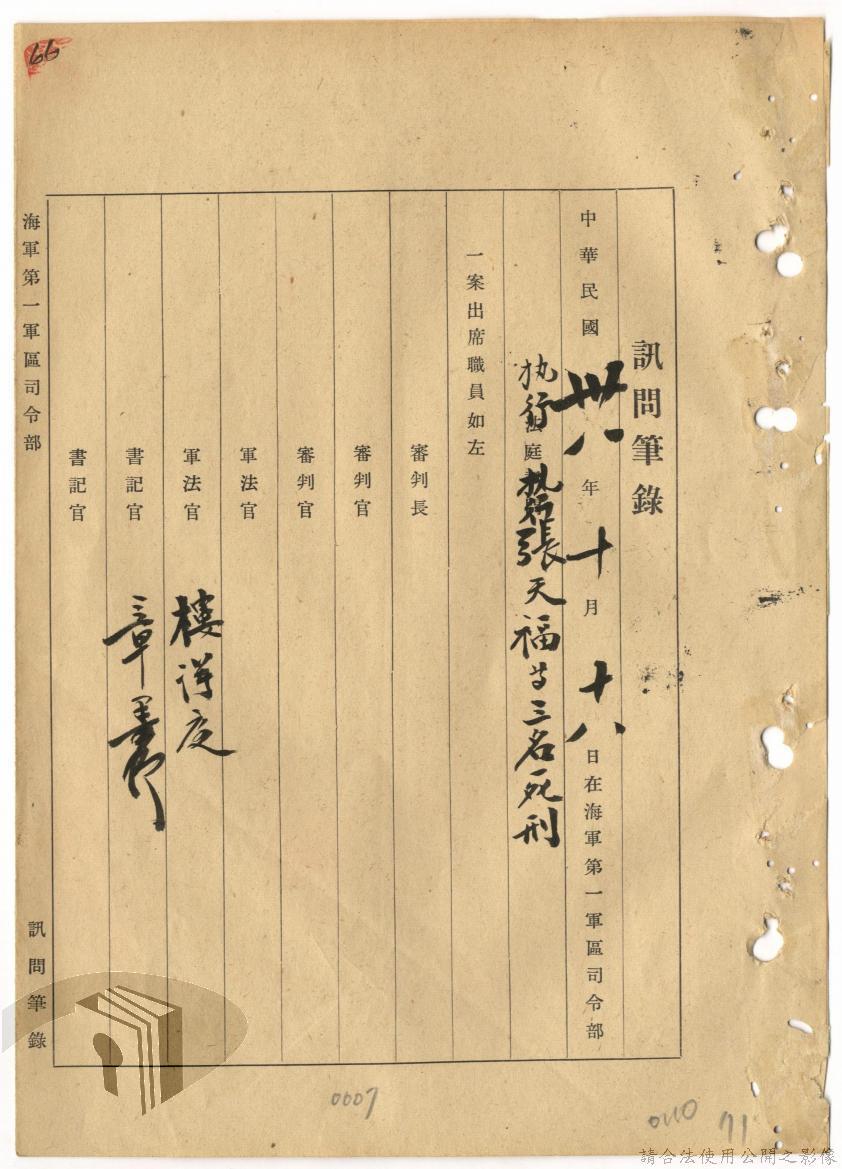 66
訊問筆錄
中華民國卅八年十月十八日在海軍第一軍區司令部
执行法庭執行張天福等三名死刑
一案出席職員如左
審判長
審判官
審判官
軍法官
軍法官 樓祥庭
書記官 章
書記官
海軍第一軍區司令部
訊問筆錄
0007
0110
71
請合法使用公開之影像